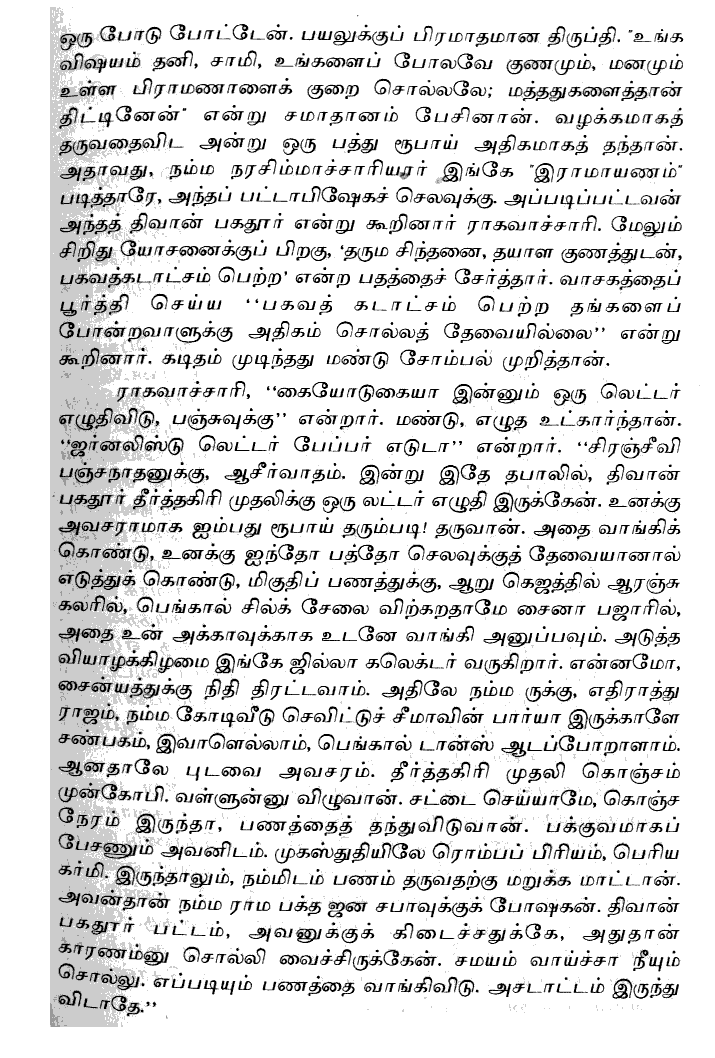 ஒரு போடு போட்டேன். பயலுக்குப் பிரமாதமான திருப்தி. "உங்க
விஷயம் தனி, சாமி, உங்களைப் போலவே குணமும், மனமும்
உள்ள பிராமணாளைக் குறை சொல்லலே; மத்ததுகளைத்தான்
திட்டினேன்" என்று சமாதானம் பேசினான். வழக்கமாகத்
தருவதைவிட அன்று ஒரு பத்து ரூபாய் அதிகமாகத் தந்தான்.
அதாவது, நம்ம நரசிம்மாச்சாரியரர் இங்கே "இராமாயணம்"
படித்தாரே, அந்தப் பட்டாபிஷேகச் செலவுக்கு. அப்படிப்பட்டவன்
அந்தத் திவான் பகதூர் என்று கூறினார் ராகவாச்சாரி. மேலும்
சிறிது யோசனைக்குப் பிறகு, 'தரும சிந்தனை, தயாள குணத்துடன்,
பகவத்கடாட்சம் பெற்ற' என்ற பதத்தைச் சேர்த்தார். வாசகத்தைப்
பூர்த்தி செய்ய ''பகவத் கடாட்சம் பெற்ற தங்களைப்
போன்றவாளுக்கு அதிகம் சொல்லத் தேவையில்லை'' என்று
கூறினார். கடிதம் முடிந்தது மண்டு சோம்பல் முறித்தான்.
ராகவாச்சாரி, ''கையோடுகையா இன்னும் ஒரு லெட்டர்
எழுதிவிடு, பஞ்சுவுக்கு'' என்றார். மண்டு, எழுத உட்கார்ந்தான்.
''ஜர்னலிஸ்டு லெட்டர் பேப்பர் எடுடா'' என்றார். ''சிரஞ்சீவி
பஞ்சநாதனுக்கு, ஆசீர்வாதம். இன்று இதே தபாலில், திவான்
பகதூர் தீர்த்தகிரி முதலிக்கு ஒரு லட்டர் எழுதி இருக்கேன். உனக்கு
அவசராமாக ஐம்பது ரூபாய் தரும்படி! தருவான். அதை வாங்கிக்
கொண்டு, உனக்கு ஐந்தோ பத்தோ செலவுக்குத் தேவையானால்
எடுத்துக் கொண்டு, மிகுதிப் பணத்துக்கு, ஆறு கெஜத்தில் ஆரஞ்சு
கலரில், பெங்கால் சில்க் சேலை விற்கறதாமே சைனா பஜாரில்,
அதை உன் அக்காவுக்காக உடனே வாங்கி அனுப்பவும். அடுத்த
வியாழக்கிழமை இங்கே ஜில்லா கலெக்டர் வருகிறார். என்னமோ,
சைன்யத்துக்கு நிதி திரட்டவாம். அதிலே நம்ம ருக்கு, எதிராத்து
ராஜம், நம்ம கோடிவீடு செவிட்டுச் சீமாவின் பார்யா இருக்காளே
சண்பகம், இவாளெல்லாம், பெங்கால் டான்ஸ் ஆடப்போறாளாம்.
ஆனதாலே புடவை அவசரம். தீர்த்தகிரி முதலி கொஞ்சம்
முன்கோபி. வள்ளுன்னு விழுவான். சட்டை செய்யாமே, கொஞ்ச
நேரம் இருந்தா, பணத்தைத் தந்துவிடுவான். பக்குவமாகப்
பேசணும் அவனிடம். முகஸ்துதியிலே ரொம்பப் பிரியம், பெரிய
கர்மி. இருந்தாலும், நம்மிடம் பணம் தருவதற்கு மறுக்க மாட்டான்.
அவன்தான் நம்ம ராம பக்த ஜன சபாவுக்குக் போஷகன். திவான்
பகதூர் பட்டம், அவனுக்குக் கிடைச்சதுக்கே, அதுதான்
காரணம்னு சொல்லி வைச்சிருக்கேன். சமயம் வாய்ச்சா நீயும்
சொல்லு. எப்படியும் பணத்தை வாங்கிவிடு. அசடாட்டம் இருந்து
விடாதே.''